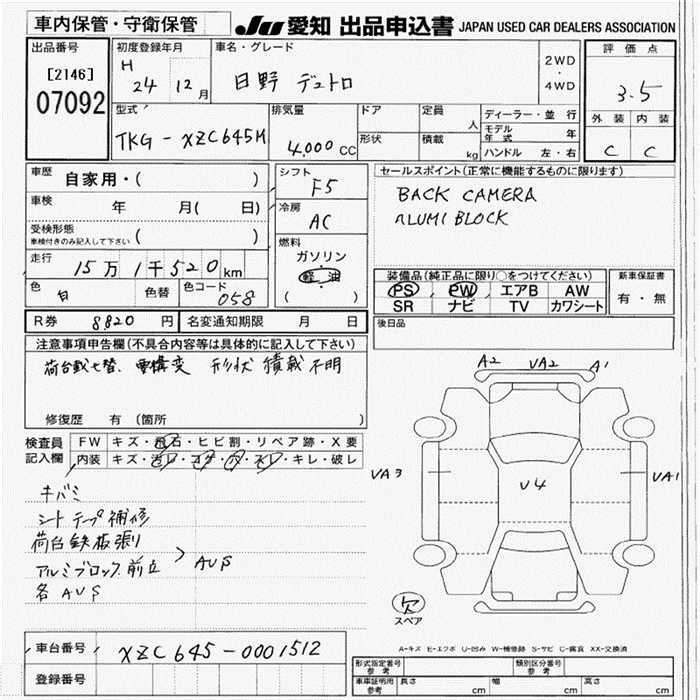 車内保管・守衛保管
JU 愛知 出品申込書 JAPAN USED CAR DEALERS ASSOCIATION
出品番号
[2146]
07092
初度登録年月
H 24 12月
車名・グレード
日野 デュトロ
2WD
・
4WD
評価点
3.5
外装 内装
C C
型式
TKG-XZC645M
排気量
4,000 CC
ドア
形状
定員
人
積載
kg
ディーラー・並行
モデル年式 年
ハンドル 左・右
車歴 自家用・( )
車検 年 月( 日)
受検形態
車検付きのみ記入して下さい ( )
走行 15万1千520km
色 白 色替 色コード 058
シフト F5
冷房 AC
燃料
ガソリン
軽・油
( )
セールスポイント(正常に機能するものに限ります)
BACK CAMERA
ALUMI BLOCK
装備品(純正品に限り○をつけてください)
PS PW エアB AW
SR ナビ TV カワシート
新車保証書
有・無
後日品
R券 8820円 名変通知期限 月 日
注意事項申告欄(不具合内容等は具体的に記入して下さい)
形状 積載 不明
修復歴 有 (箇所 )
検査員
記入欄
FW キズ・飛石・ヒビ割・リペア跡・X要
内装 キズ・汚レ・コゲ・穴・スレ・キレ・破レ
キバミ
シートテープ補修
荷台鉄板張り
アルミブロック前立 > AUS
各AUS
A2 VA2 A1
VA3 U4 VA1
欠
スペア
A-キズ E-エクボ U-凹み W-補修跡 S-サビ C-腐食 XX-交換済
車台番号 XZC645-0001512
登録番号
形式指定番号
参考
類別区分番号
参考
車庫証明用
参考
長さ cm 幅 cm 高さ cm